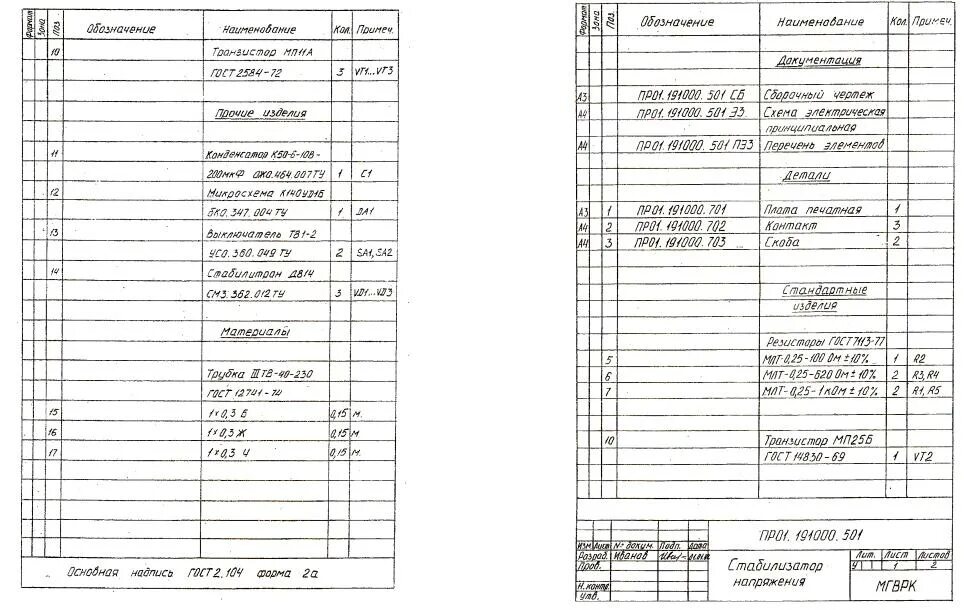 Формат Зона Поз. Обозначение Наименование Кол. Примеч.
10 Транзистор МП11А
ГОСТ 2584-72 3 VT1...VT3
Прочие изделия
11 Конденсатор К50-6-10В-
200мкФ ОЖО.464.007ТУ 1 C1
12 Микросхема К140УД1Б
бКО.347.004 ТУ 1 DA1
13 Выключатель ТВ1-2
УСО.360.049 ТУ 2 SA1, SA2
14 Стабилитрон Д814
СМ3.362.012 ТУ 3 VD1...VD3
Материалы
Трубка IIIТВ-40-230
ГОСТ 12741-74
15 1×0,3 Б 0,15 м.
16 1×0,3 Ж 0,15 м
17 1×0,3 Ч 0,15 м.
Основная надпись ГОСТ 2.104 форма 2а
Формат Зона Поз. Обозначение Наименование Кол. Примеч.
Документация
А3 ПР01.191000.501 СБ Сборочный чертеж
А4 ПР01.191000.501 Э3 Схема электрическая
принципиальная
А4 ПР01.191000.501 ПЭ3 Перечень элементов
Детали
А3 1 ПР01.191000.701 Плата печатная 1
А4 2 ПР01.191000.702 Контакт 3
А4 3 ПР01.191000.703 Скоба 2
Стандартные
изделия
Резисторы ГОСТ7113-77
5 МЛТ-0,25-100 Ом ±10% 1 R2
6 МЛТ-0,25-620 Ом ±10% 2 R3, R4
7 МЛТ-0,25-1 кОм ±10% 2 R1, R5
10 Транзистор МП25Б
ГОСТ 14830-69 1 VT2
ПР01.191000.501
Изм Лист № докум. Подп. Дата
Разраб. Иванов
Пров.
Н.контр.
Утв.
Стабилизатор
напряжения
Лит. Лист Листов
У 1 2
МГВРК